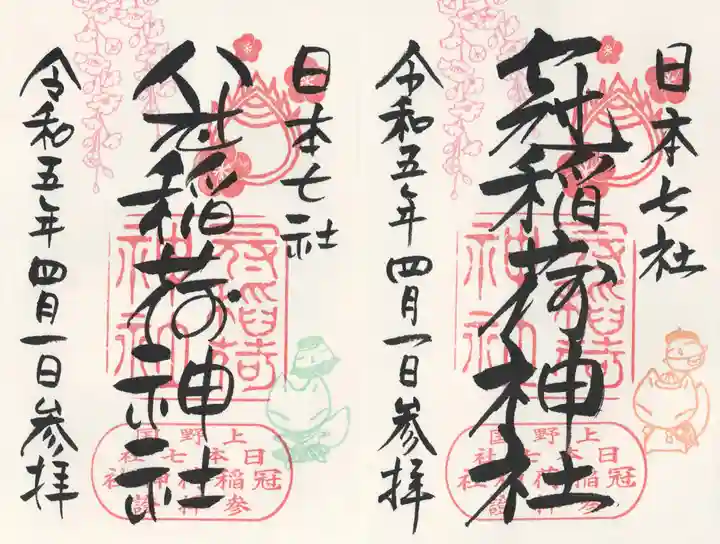 日本七社
冠稲荷神社
令和五年四月一日参拝
冠稲荷
神社
上野国
日本七社
冠稲荷神社
参拝證
日本七社
八社稲荷神社
令和五年四月一日参拝
冠稲荷
神社
上野国
日本七社
冠稲荷神社
参拝證